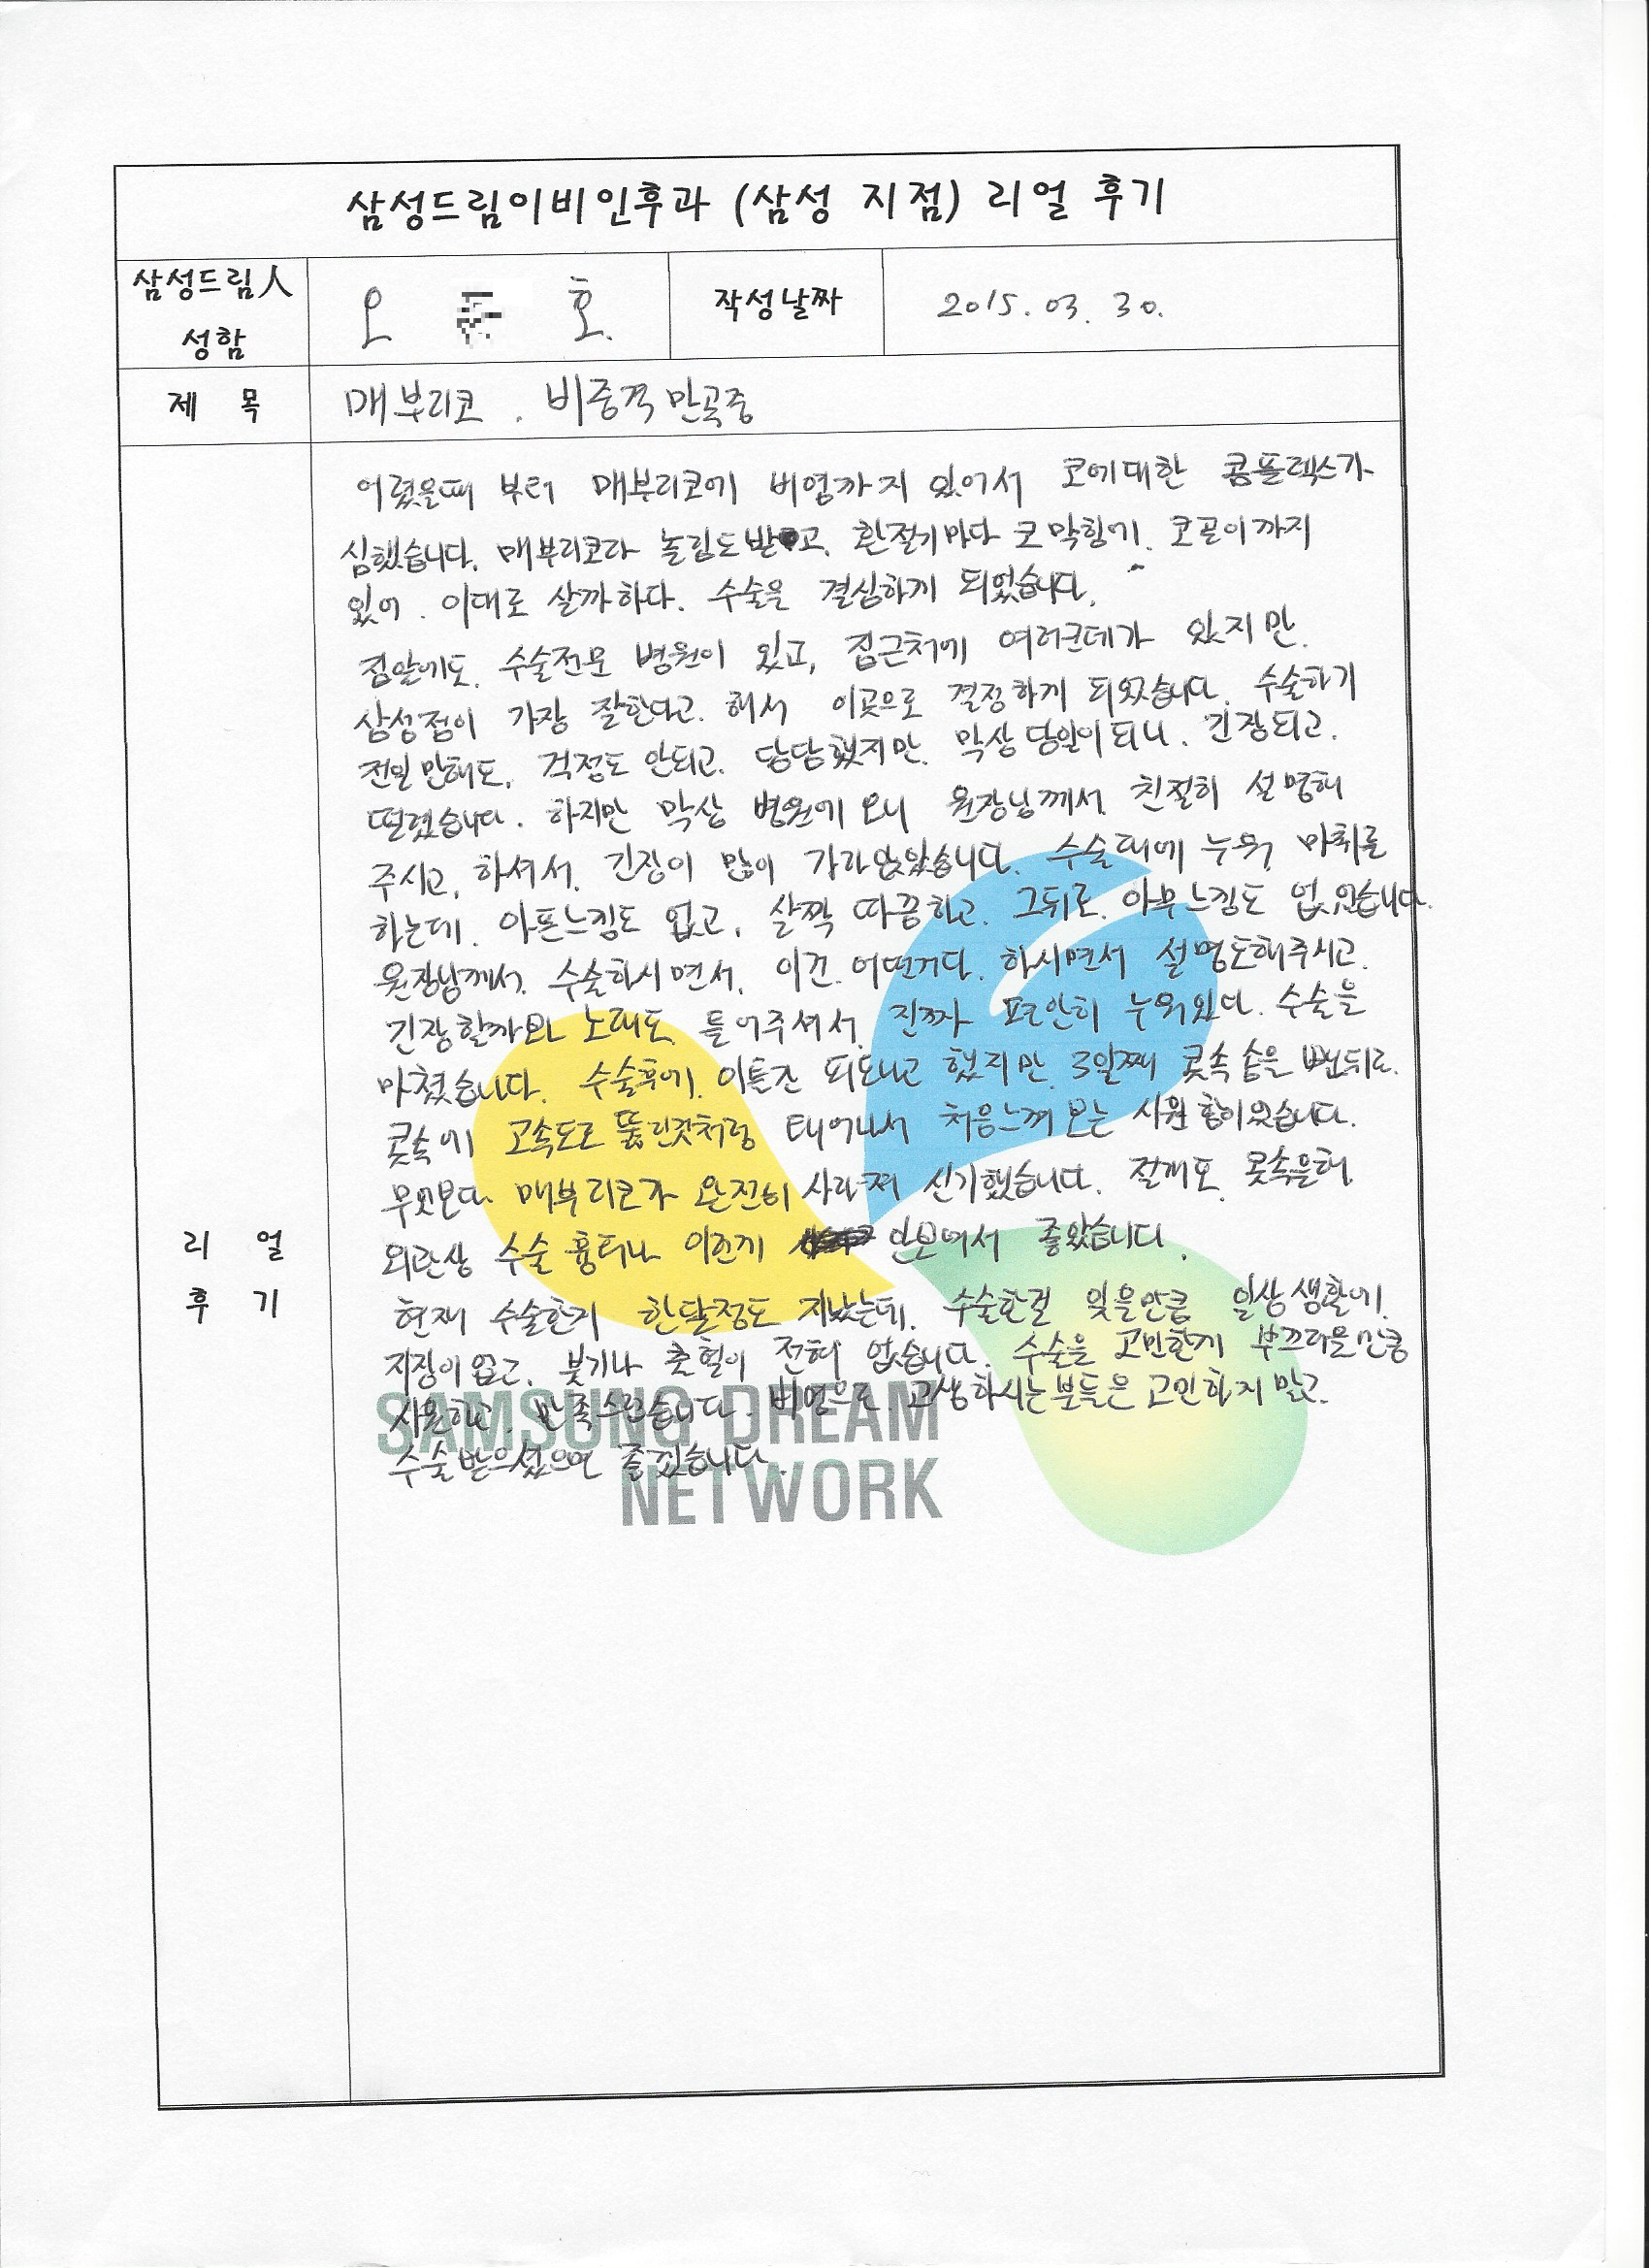 삼성드림이비인후과 (삼성 지점) 리얼 후기
삼성드림人 성함
오 호.
작성날짜
2015. 03. 30.
제 목
매부리코 . 비중격만곡증
어렸을때 부터 매부리코에 비염까지 있어서 코에대한 콤플렉스가
심했습니다. 매부리코라 놀림도받고. 환절기마다 코막힘에. 코골이까지
있어. 이대로 살까하다. 수술을 결심하게 되었습니다.
집앞에도. 수술전문 병원이 있고, 집근처에 여러군데가 있지만.
삼성점이 가장 잘한다고. 해서 이곳으로 결정하게 되었습니다. 수술하기
전일 만해도. 걱정도 안되고. 담담했지만. 막상 당일이 되니. 긴장되고.
떨렸습니다. 하지만 막상 병원에 오니 원장님께서 친절히 설명해
주시고, 하셔서. 긴장이 많이 가라앉았습니다. 수술대에 누워, 마취를
하는데. 아픈느낌도 없고, 살짝 따끔하고. 그뒤로. 아무느낌도 없었습니다.
원장님께서. 수술하시면서. 이건. 어떤거다. 하시면서 설명도해주시고.
긴장할까봐 노래도 틀어주셔서. 진짜 편안히 누워있다. 수술을
마쳤습니다. 수술후에. 이틀간 피도나고 했지만. 3일째 콧속 솜을 뺀뒤로.
콧속에 고속도로 뚫린것처럼 태어나서 처음느껴보는 시원함이었습니다.
무엇보다 매부리코가 완전히 사라져 신기했습니다. 절개도. 콧속을해.
외관상 수술 흉터나 이런게 안보여서 좋았습니다.
현재 수술한지 한달정도 지났는데. 수술한걸 잊을만큼 일상생활에.
지장이없고. 붓기나 출혈이 전혀 없습니다. 수술을 고민한게 부끄러울만큼
시원하고. 만족스럽습니다. 비염으로. 고생하시는분들은 고민하지말고.
수술받으셨으면 좋겠습니다.
리 얼
후 기
SAMSUNG DREAM
NETWORK